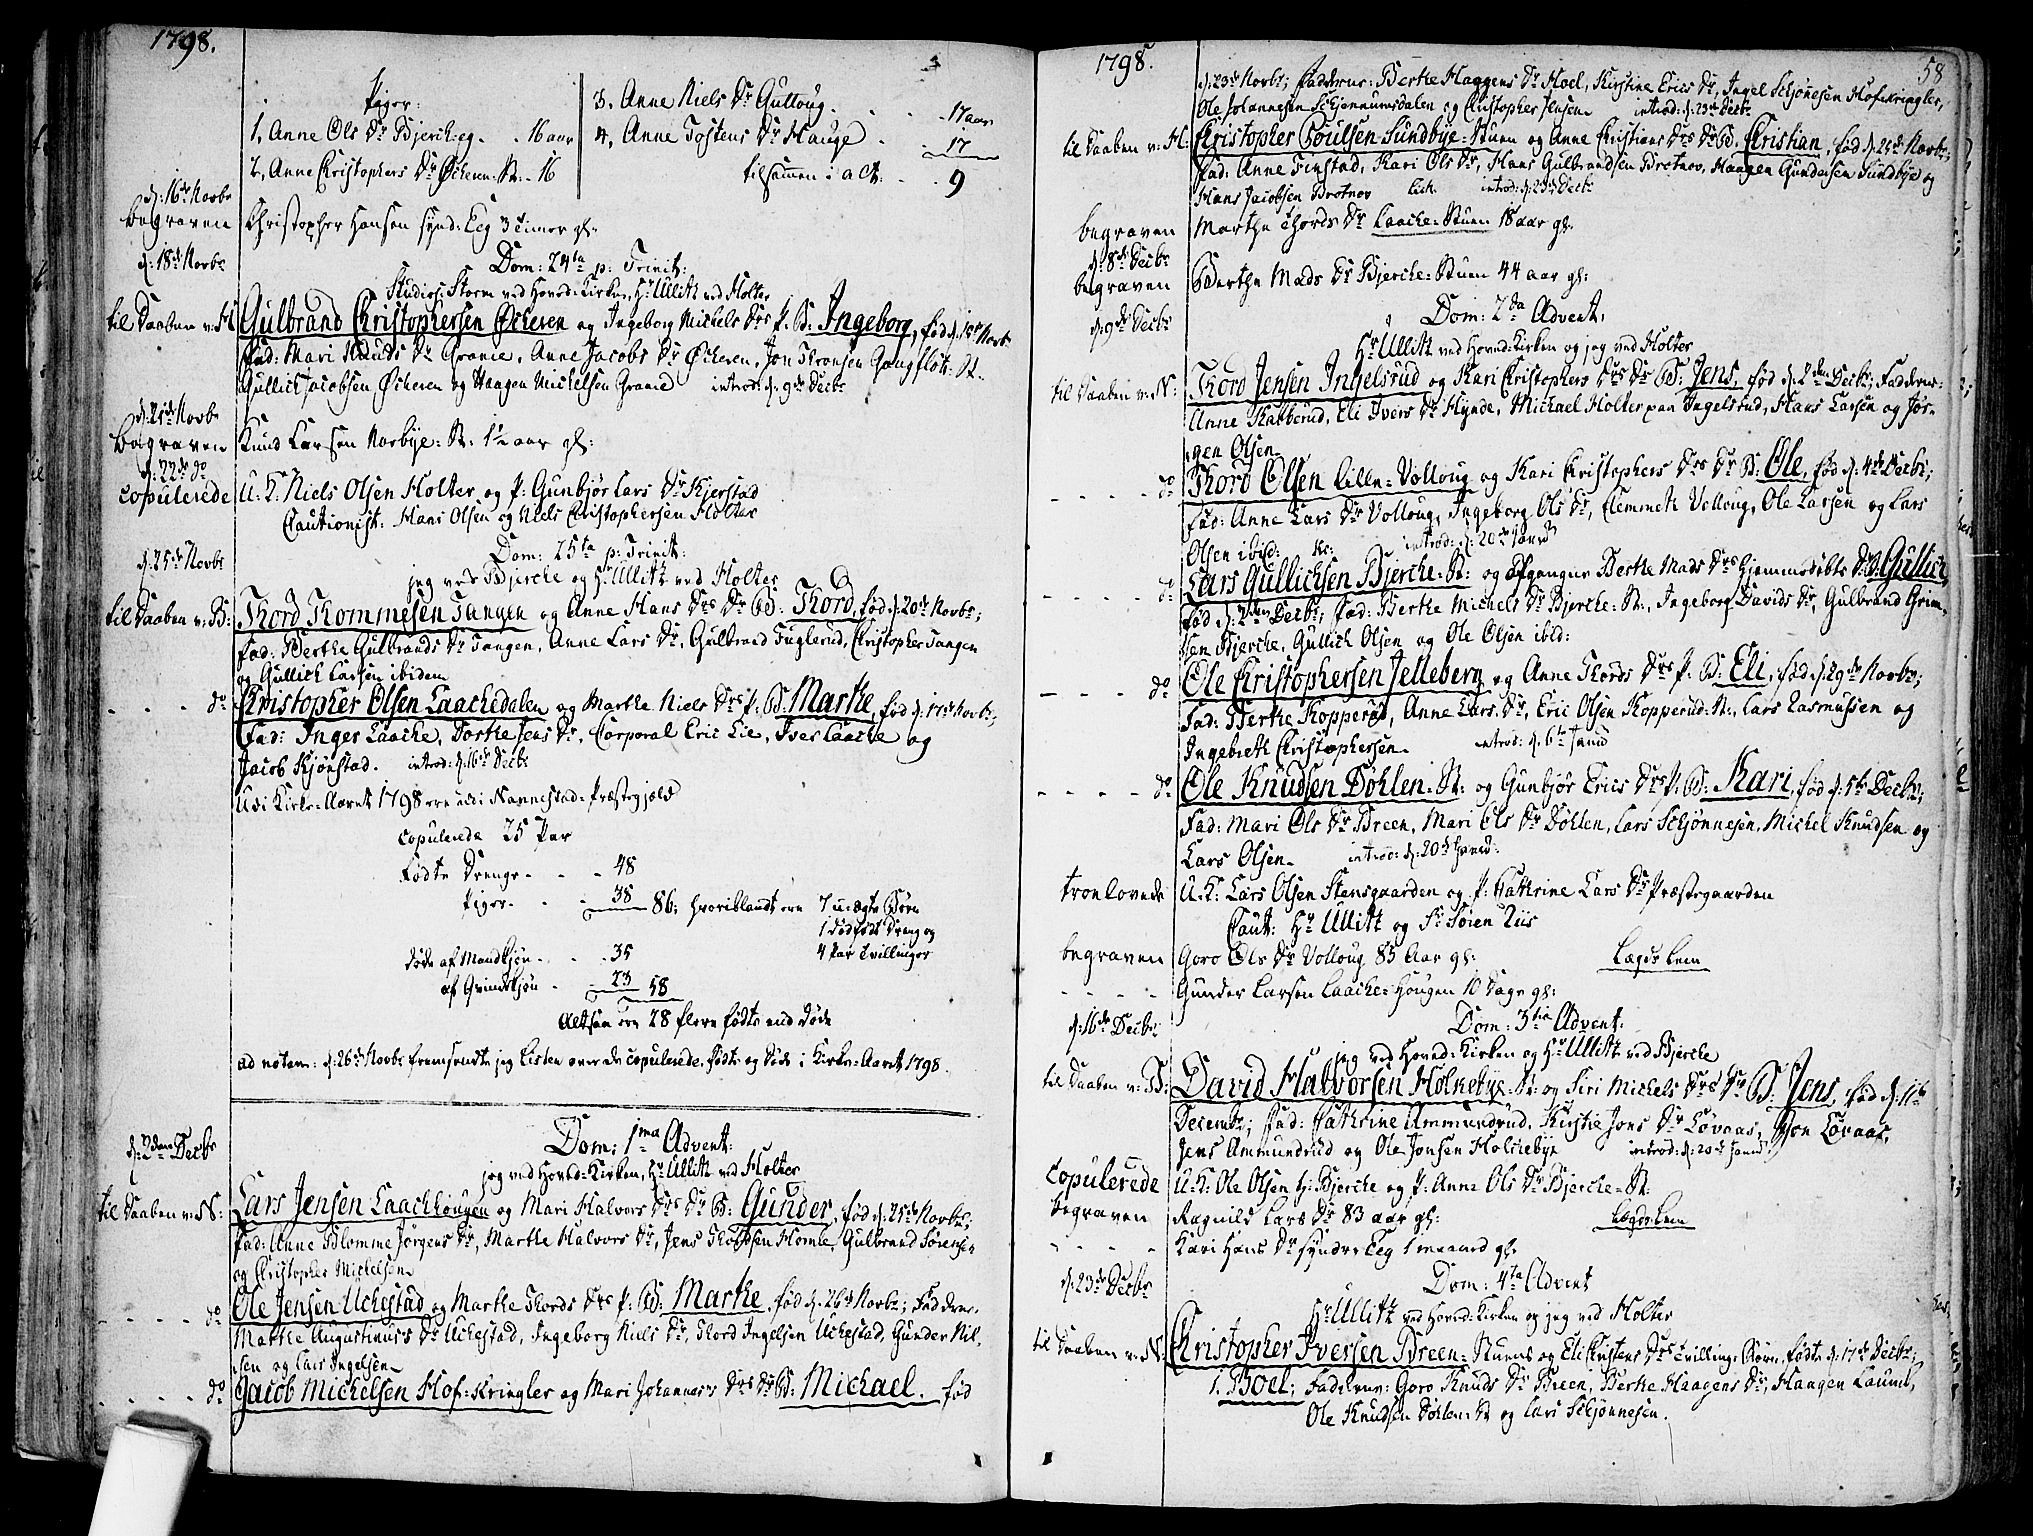 1798.
Piger:
1, Anne Ols Dr Bjerch-eg. - . 16 aar
2, Anne Christophers Dr Ócheren: St: - 16
3, Anne Niels Dr Gulloug. - - - 17 aar
4, Anne Tostens Dr Hauge - - 17
tilsammen i alt - - 9
d: 16de Novbr
begraven Christopher Hansen synd: Eeg 3 timer gl:
d: 18de Novbr
Dom: 24ta p: Trinit:
Studios: Storm ved Hoved-Kirken, Hr Ullitz ved Holter
til Daaben v: H: Gulbrand Christophersen Ócheren og Ingeborg Michels Drs P. B: Ingeborg, fød d: 18de Novbr
Fad: Mari Knuds Dr Granie, Anne Jacobs Dr Ócheren, Jon Thronsen Gangfløt: St.
Gullich Jacobsen Ócheren og Haagen Michelsen Granie introd: d: 9de Decbr
d: 21de Novbr
begraven Knud Larsen Norbye: St: 1½ aar gl:
d: 22de do
copulerede U: K: Niels Olsen Holter og P: Gunbjør Lars Dr Kjerstad
Cautionist: Hans Olsen og Niels Christophersen Holter
d: 25de Novbr
Dom: 25ta p: Trinit:
jeg ved Bjerche og Hr Ullitz ved Holter
til Daaben v: B: Thord Thommesen Tangen og Anne Hans Drs Dr B: Thord, fød d: 20de Novbr;
Fad: Berthe Gulbrands Dr Tangen, Anne Lars Dr, Gulbrand Fuglerud, Christopher Tangen
og Gullich Larsen ibidem
- - - do Christopher Olsen Laachedalen og Marthe Niels Drs P: B: Marthe, fød d: 17de Novbr,
Fad: Inger Laache, Dorthe Jens Dr, Corporal Eric Lie, Iver Laache og
Jacob Kjónstad. introd: d: 16de Decbr
Udi Kirke-Aaret 1798 ere udi Nannestad-Præstegjeld
copulerede 25 Par
Fødte Drenge - - - 48
Piger - - - 38 86; hvoriblandt ere 7 uægte Børn
1 dødfødt Dreng og
4 Par Tvillinger
Døde af Mandkjøn - - - 35
af Qvindekjøn - - 23 58
Altsaa ere 28 flere fødte end døde
ad notam: d: 26de Novbr fremsendte jeg Listen over de copulerede, fødte og døde i Kirke-Aaret 1798.
d: 2den Decbr
Dom: 1ma Advent:
jeg ved Hoved-Kirken, Hr Ullitz ved Holter
til Daaben v: N: Lars Jensen Laachhougen og Mari Halvors Drs Dr B: Gunder, fød d: 25de Novbr;
Fad: Anne Blomme Jørgens Dr, Marthe Halvors Dr, Jens Thordsen Homle, Gulbrand Sørensen
og Christopher Michelsen
- - - - do Ole Jensen Uchestad og Marthe Thords Drs P: B: Marthe, fød d: 26de Novbr; Faddere:
Marthe Augustinuses Dr Uchestad, Ingeborg Niels Dr, Thord Ingelsen Uchestad, Gunder Nil-
sen og Lars Ingelsen
- - - - do Jacob Michelsen Hof-Kringler og Mari Johannes Drs Dr B: Michael. fød
1798.
58
d: 23de Novbr; Fadderne: Berthe Haagens Dr Hoel, Kirstine Erics Dr, Ingel Schjónesen Hofskringler,
Ole Johannesen Schjennumsdalen og Christopher Jensen introd: d: 23de Decbr
til Daaben v: H: Christopher Poulsen Sundbye-Stuen og Anne Christians Drs Dr B. Christian, fød d: 24de Novbr;
Fad: Anne Finstad, Kari Ols Dr, Hans Gulbrandsen Brotnov, Haagen Gundersen Sundbye og
Hans Jacobsen Brotnov introd: d: 23de Decbr
begraven Marthe Thords Dr Laache-Stuen 18 aar gl:
d: 8de Decbr
begraven Berthe Mads Dr Bjerche-Stuen 44 aar gl:
d: 9de Decbr
Dom: 2da Advent:
Hr Ullitz ved Hoved-Kirken og jeg ved Holter
til Daaben v: N: Thord Jensen Ingelsrud og Kari Christophers Drs Dr B: Jens, fød d: 2den Decbr; Faddere:
Anne Katterud, Eli Ivers Dr Hynde, Michael Holter paa Ingelsrud, Hans Larsen og Jør-
gen Olsen
- - - - do Thord Olsen lille-Volloug og Kari Christophers Drs Dr B: Ole, fød d: 4de Decbr;
Fad: Anne Lars Dr Volloug, Ingeborg Ols Dr, Clemmeth Volloug, Ole Larsen og Lars
Olsen ibid: introd: d: 20de Janrii
- - - - do Lars Gullichsen Bjerche-St: og afgangne Berthe Mads Drs hjemmedøbte D: B: Gullich,
fød d: 2den Decbr; Fad: Berthe Michels Dr Bjerche-St:, Ingeborg Davids Dr, Gulbrand Grim-
sen Bjerche, Gullich Olsen og Ole Olsen ibid:
- - - - do Ole Christophersen Jelleberg og Anne Thords Drs P: B: Eli, fød d: 29de Novbr;
Fad: Berthe Kopperød, Anne Lars Dr, Eric Olsen Kopperud-St:, Lars Rasmussen og
Ingebreth Christophersen. introd: d: 6te Janrii
- - - - do Ole Knudsen Dóhlen-St: og Gunbjør Erics Drs P: B: Kari, fød d: 5te Decbr;
Fad: Mari Ols Dr Breen, Mari Ols Dr Dóhlen, Lars Schjønnesen, Michel Knudsen og
Lars Olsen. introd: d: 20de Janrii
tronlovede U: K: Lars Olsen Stensgaarden og P: Cathrine Lars Dr Præstegaarden
Caut: Hr Ullitz og Sr Søren Riis
begraven Goro Ols Dr Volloug 85 Aar gl: Lægds Lem
- - - - Gunder Larsen Laache-Hougen 10 Dage gl:
d: 16de Decbr
Dom: 3tia Advent:
jeg ved Hoved-Kirken og Hr Ullitz ved Bjerche
til Daaben v: B: David Halvorsen Holchebye-St: og Siri Michels Drs Dr B: Jens, fød d: 11te
Decembr; Fad: Cathrine Ammundrud, Kirstie Jons Dr Løvaas, Jon Løvaas,
Jens Ammundrud og Ole Jonsen Holchebye introd: d: 20de Janrii
copulerede U: K: Ole Olsen H: Bjerche og P: Anne Ols Dr Bjerche-St:
begraven Ragnild Lars Dr 83 aar gl: Lægds Lem
- - - - Kari Hans Dr syndre Eeg 1 maaned gl:
d: 23de Decbr
Dom: 4ta Advent
Hr Ullitz ved Hoved-Kirken og jeg ved Holter
til Daaben v: N: Christopher Iversen Breen-Stuens og Eli Christens Drs Tvillinge-Børn, fødte d: 17de Decbr;
1. Boel; Fadderne: Goro Knuds Dr Breen, Berthe Haagens Dr, Haagen Laund,
Ole Knudsen Dóhlen: St og Lars Schjønnesen.